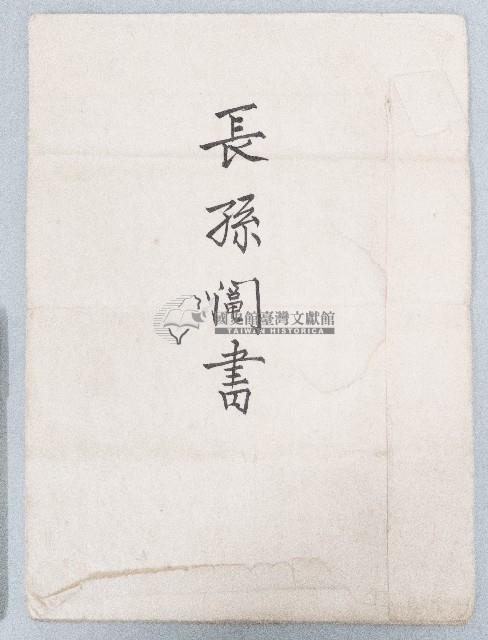 長孫鬮書
國史館臺灣文獻館
TAIWAN HISTORICA